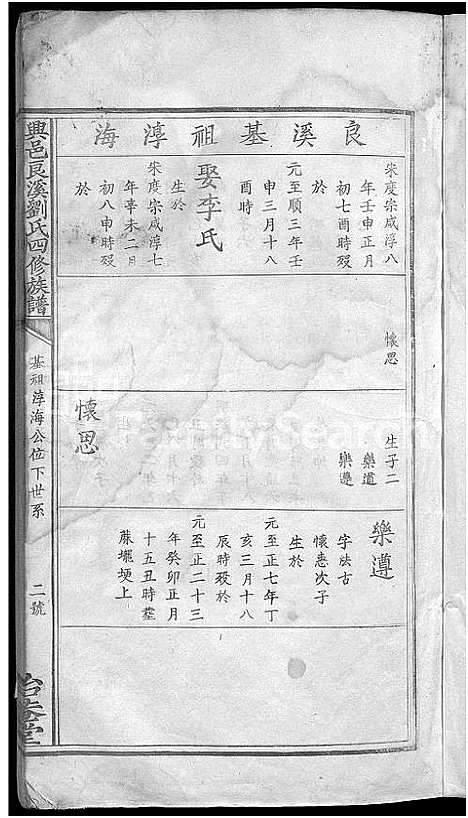 良溪基祖淳海
宋度宗咸淳八
年壬申正月
初七酉時殁
於
元至順三年壬
申三月十八
酉時
娶李氏
生於
宋度宗咸淳七
年辛未二月
初八申時殁
於
懷思
生子二
樂道
樂遵
懷思
樂遵
字法古
懷恚次子
生於
元至正七年丁
亥三月十八
辰時殁於
元至正二十三
年癸卯正月
十五丑時塟
蔴壠埂上
興邑良溪劉氏四修族譜
基祖淳海公位下世系
二號